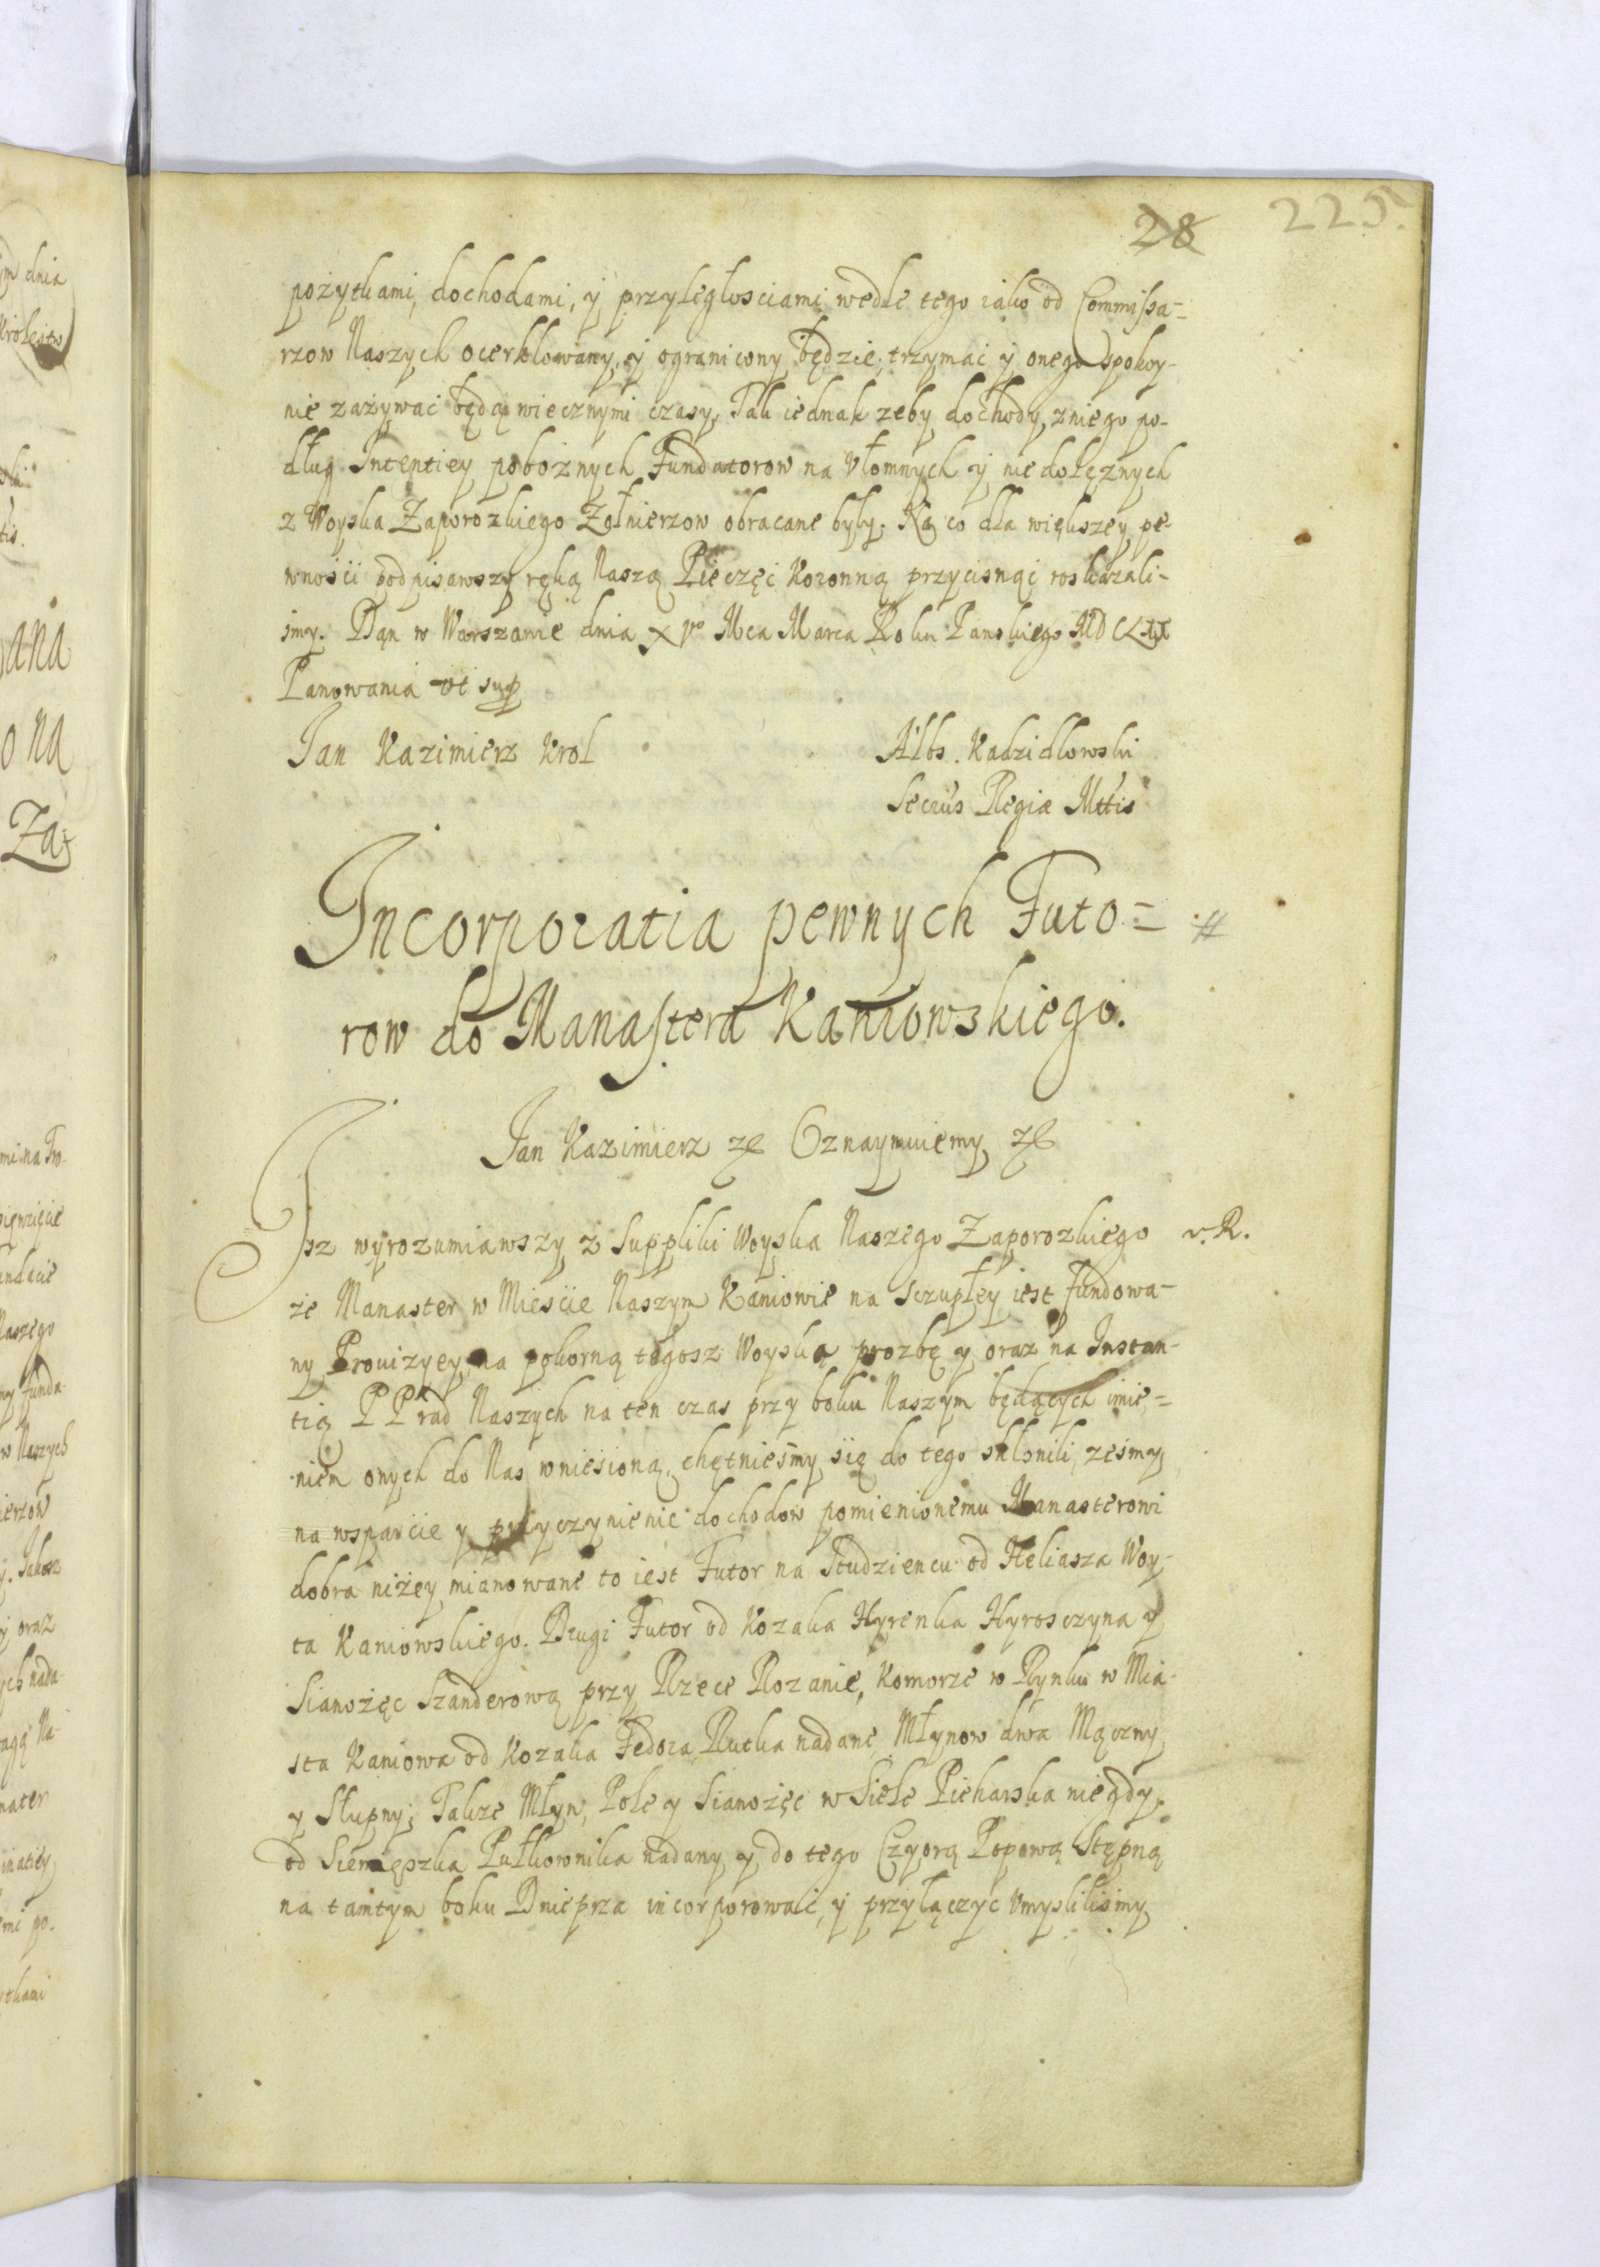 28 225.
pożytkami, dochodami, y przyległosciami wedle tego iako od Commissa-
rzow Naszych ocerklowany, y ograniczony będzie, trzymać y onego spokoy-
nie zażywać będą wiecznymi czasy, Tak iednak zeby dochody z niego po-
dług Intentiey pobożnych Fundatorow na Vłomnych y niedołężnych
z Woyska Zaporozkiego Zołnierzow obracane były. Na co dla większey pe-
wności podpisawszy ręką Naszą Pieczęć Koronną przycisnąć roskazali-
smy. Dan w Warszawie dnia XVo Mca Marca Roku Panskiego
Panowania vt sup
Jan Kazimierz Krol
Albs. Kadzidlowski
Secrus Regiæ Mttis
Incorporatia pewnych Futo=
row do Manastera Kaniowskiego.
Jan Kazimierz etc Oznaymuiemy etc
Isz wyrozumiawszy z Suppliki Woyska Naszego Zaporozkiego v. R.
że Manaster w Mieście Naszym Kaniowie na Sczupłey iest Fundowa-
ny Prouizyey, na pokorną tegosz Woyska prozbę y oraz na Instan-
tią PP rad Naszych na ten czas przy boku Naszym będących imie=
niem onych do Nas wniesioną, chętnieśmy się do tego skłonili, żeśmy
na wsparcie y przyczynienie dochodow pomienionemu Manasterowi
dobra niżey mianowane to iest Futor na Studziencu od Heliasza Woy-
ta Kaniowskiego. Drugi Futor od Kozaka Hyrenka Hyrosczyna y
Sianożęć Szanderową przy Rzece Rozanie, Komorze w Rynku w Mia-
sta Kaniowa od Kozaka Fedora Rutka nadane, Młynow dwa Mączny
y Stupny, Także Młyn, Pole y Sianożęć w Siele Piekarska niegdy
od Siemaszka Pułkownika nadany y do tego Czyorą Popową Stępną
na tamtym boku Dniepra incorporować, y przyłączyć Vmyslilismy